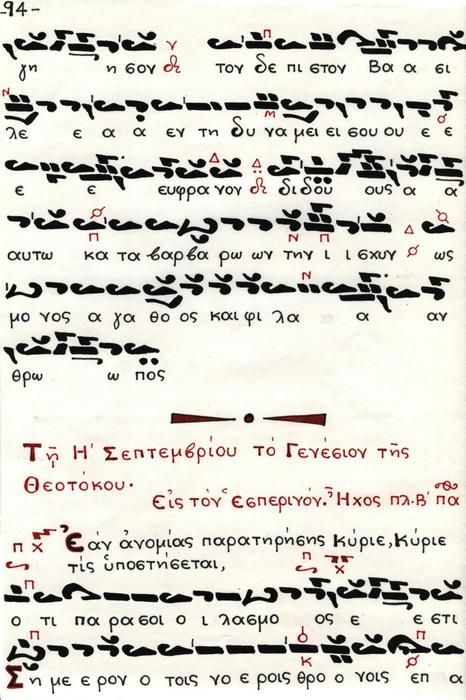 -94-
γη η σον τον δε πι στον Βα α σι
λε ε α α εν τη δυ να μει ει σου ου ε ε
ε ε ευφρα νον δι δου ους α α
αυτω κα τα βαρβα ρω ων την ι ι σχυν ως
μο νος α γα θο ος και φι λα α αν
θρω ω πος
Τῇ Η' Σεπτεμβρίου τό Γενέσιον τῆς
Θεοτόκου.
Εἰς τόν Ἑσπερινόν. Ἦχος πλ. Β' πα
Ἐάν ἀνομίας παρατηρήσης Κύριε, Κύριε
τίς ὑποστήσεται,
ο τι πα ρα σοι ο ι λασμο ος ε ε στι
Ση με ε ρον ο τοις νο ε ροις θρο ο νοις επ α